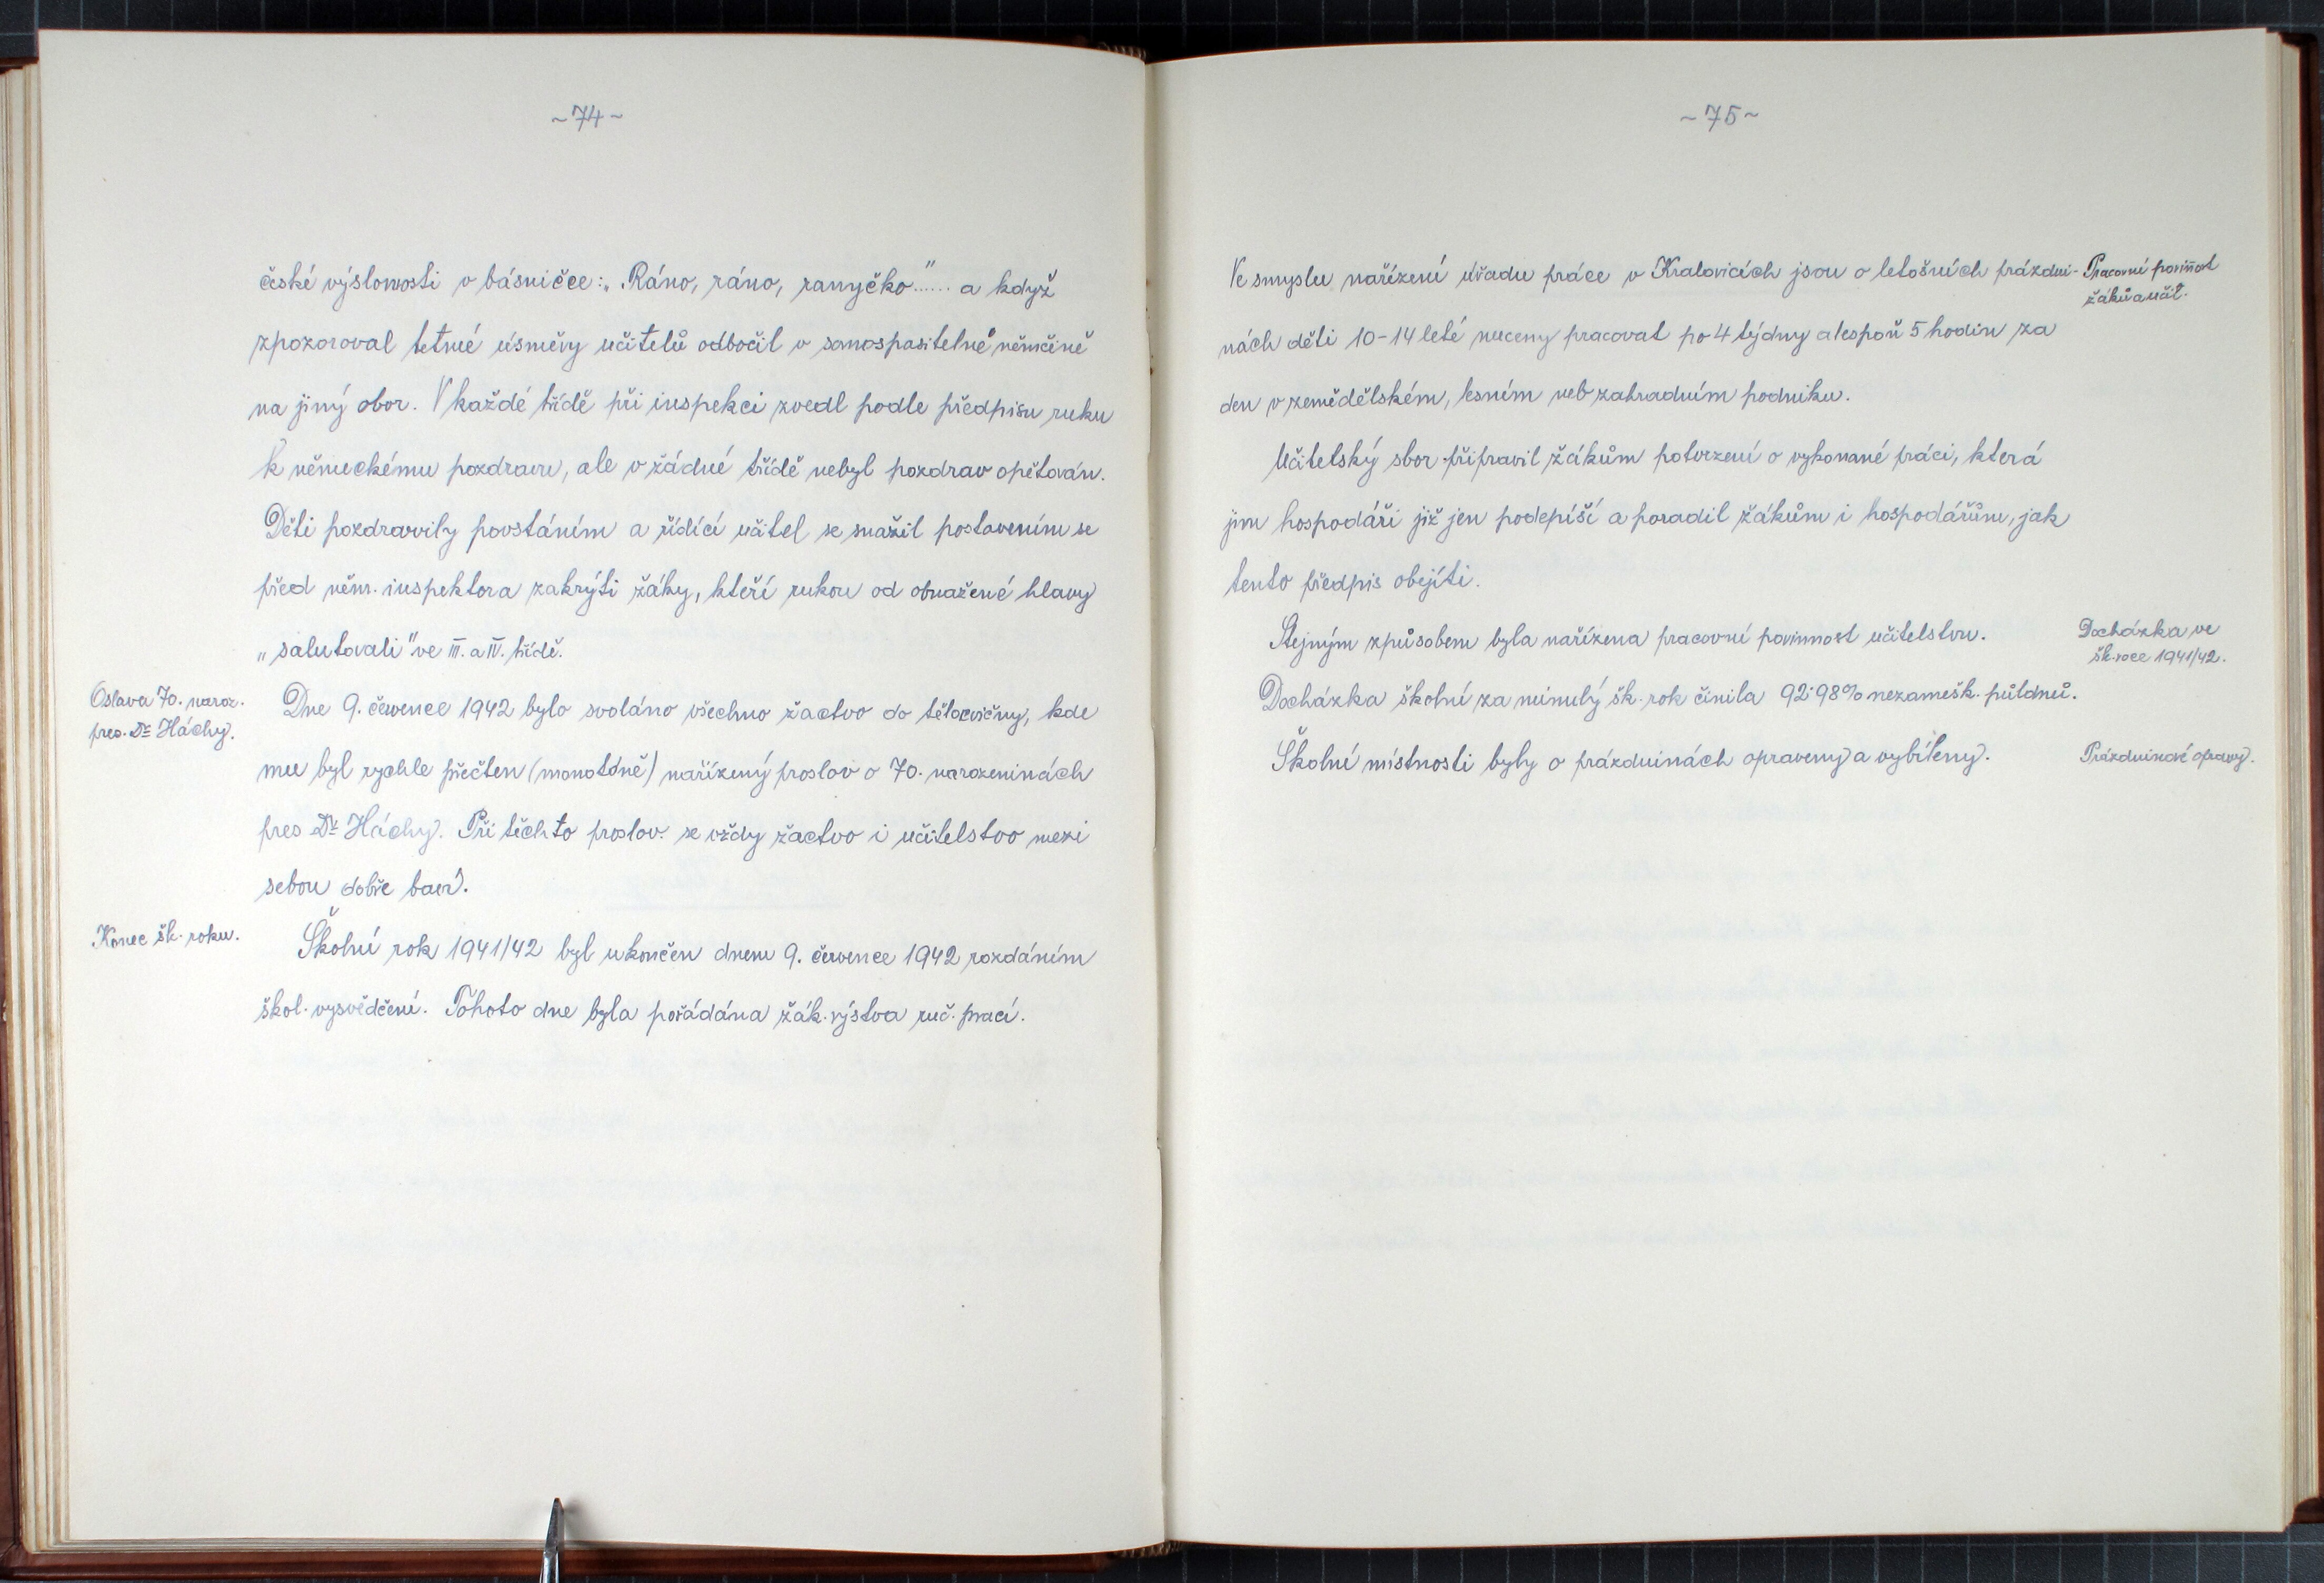 ~74~
české výslovnosti v básničce: „Ráno, ráno, ranyčko"...... a když
zpozoroval tetné úsměvy učitelů odbočil v samospasitelné němčině
na jiný obor. V každé třídě při inspekci zvedl podle předpisu ruku
k německému pozdravu, ale v žádné třídě nebyl pozdrav opětován.
Děti pozdravily povstáním a řídící učitel se snažil postavením se
před něm. inspektora zakrýti žáky, kteří rukou od obnažené hlavy
„salutovali" ve III. a IV. třídě.
Oslava 70. naroz.
pres. Dr Háchy.
Dne 9. července 1942 bylo svoláno všechno žactvo do tělocvičny, kde
mu byl rychle přečten (monotóně) nařízený proslov o 70. narozeninách
pres Dr Háchy. Při těchto proslov. se vždy žactvo i učitelstvo mezi
sebou dobře baví.
Konec šk. roku.
Školní rok 1941/42 byl ukončen dnem 9. července 1942 rozdáním
škol. vysvědčení. Tohoto dne byla pořádána žák. výstva ruč. prací.
~75~
Ve smyslu nařízení úřadu práce v Kralovicích jsou o letošních prázdni-
nách děti 10-14 leté nuceny pracovat po 4 týdny alespoň 5 hodin za
den v zemědělském, lesním neb zahradním podniku.
Pracovní povin̄ost
žáků a učit.
Učitelský sbor připravil žákům potvrzení o vykonané práci, která
jim hospodáři již jen podepíší a poradil žákům i hospodářům, jak
tento předpis obejíti.
Stejným způsobem byla nařízena pracovní povinnost učitelstvu.
Docházka ve
šk. roce 1941/42.
Docházka školní za minulý šk. rok činila 92·98% nezamešk. půldnů.
Školní místnosti byly o prázdninách opraveny a vybíleny.
Prázdninové opravy.